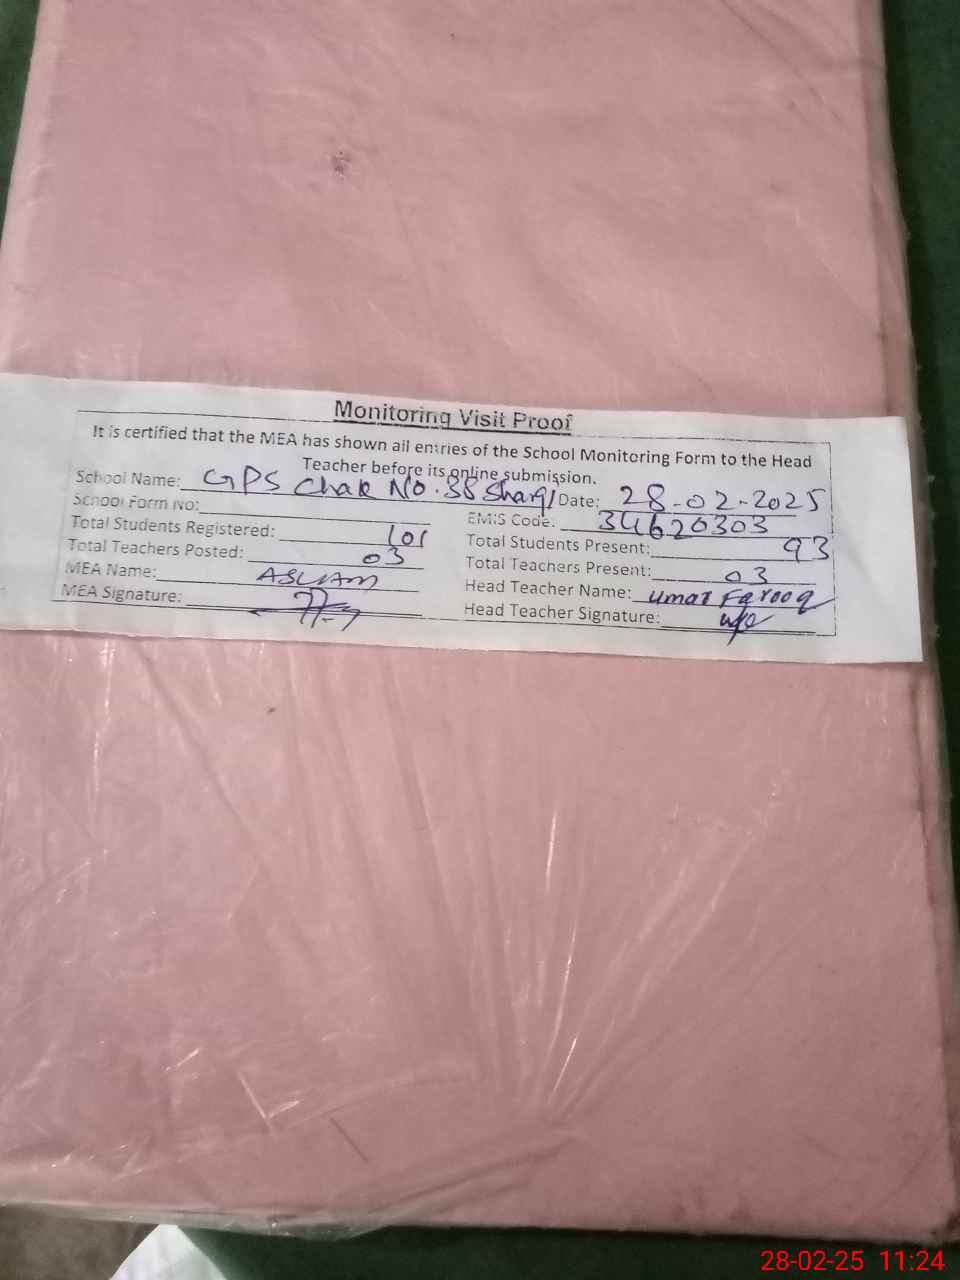 Monitoring Visit Proof
It is certified that the MEA has shown all entries of the School Monitoring Form to the Head
Teacher before its online submission.
School Name: GPS Chak No. 38 Sharqi Date: 28-02-2025
School Form No: EMIS Code: 34620303
Total Students Registered: 101 Total Students Present: 93
Total Teachers Posted: 03 Total Teachers Present: 03
MEA Name: ASLAM Head Teacher Name: Umar Farooq
MEA Signature: Head Teacher Signature:
28-02-25 11:24